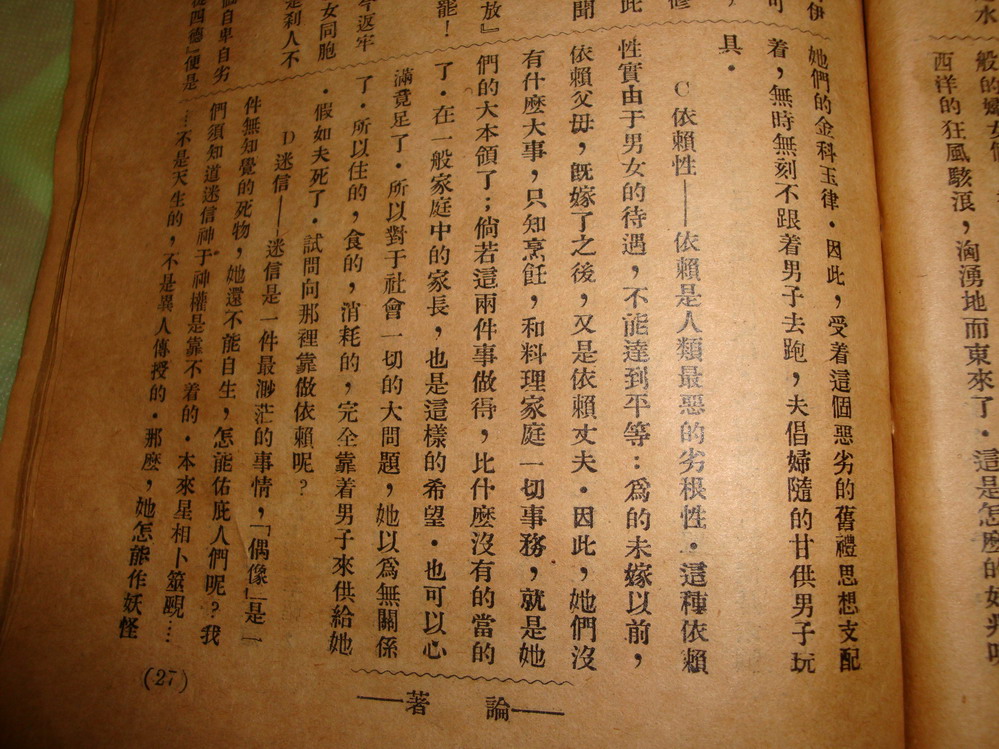 水
般的婦女們
西洋的狂風駭浪，洶湧地而東來了．這是怎麼的好
伊
可
修
此
聞
放』
罷！
今返牢
女同胞
是刹人不
個自卑自劣
從四德』便是
她們的金科玉律．因此，受着這個惡劣的舊禮思想支配
着，無時無刻不跟着男子去跑，夫倡婦隨的甘供男子玩
具．
C依賴性——依賴是人類最惡的劣根性．這種依賴
性實由于男女的待遇，不能達到平等：爲的未嫁以前，
依賴父毋，旣嫁了之後，又是依賴丈夫．因此，她們沒
有什麽大事，只知烹飪，和料理家庭一切事務，就是她
們的大本領了；倘若這兩件事做得，比什麽沒有的當的
了．在一般家庭中的家長，也是這樣的希望．也可以心
滿竟足了．所以對于社會一切的大問題，她以爲無關係
了．所以住的，食的，消耗的，完全靠着男子來供給她
．假如夫死了．試問向那裡靠做依賴呢？
D迷信——迷信是一件最渺茫的事情，「偶像」是一
件無知覺的死物，她還不能自生，怎能佑庇人們呢？我
們須知道迷信神于神權是靠不着的．本來星相卜筮覡……
…不是天生的，不是異人傳授的．那麽，她怎能作妖怪
論著
(27)